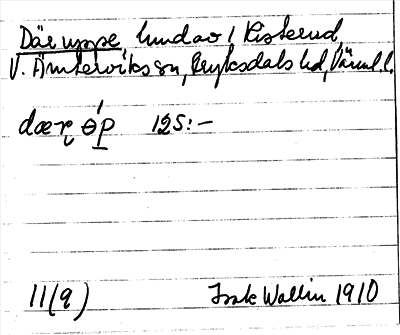 Där uppe, hmd av / Kisterud,
V. Ämterviks sn, Fryksdals hd, Värml. l.
dær ɵ́p 12S:–
11(9) Isak Wallin 1910